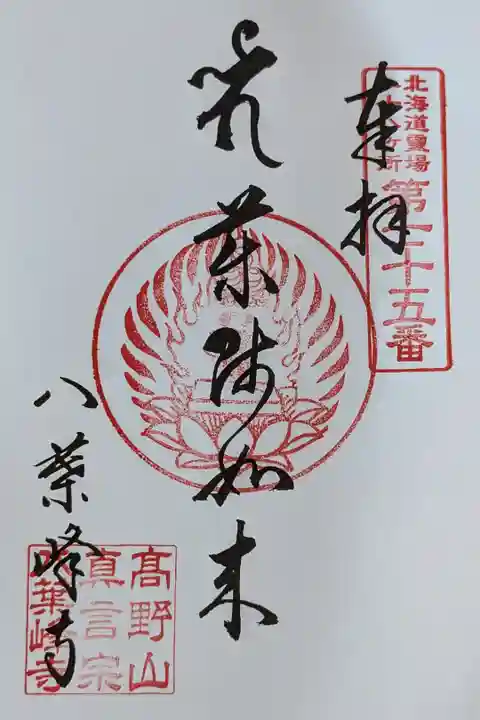 奉拝
北海道靈場
第十五番
薬師如来
八葉峰寺
髙野山
真言宗
八葉峰寺